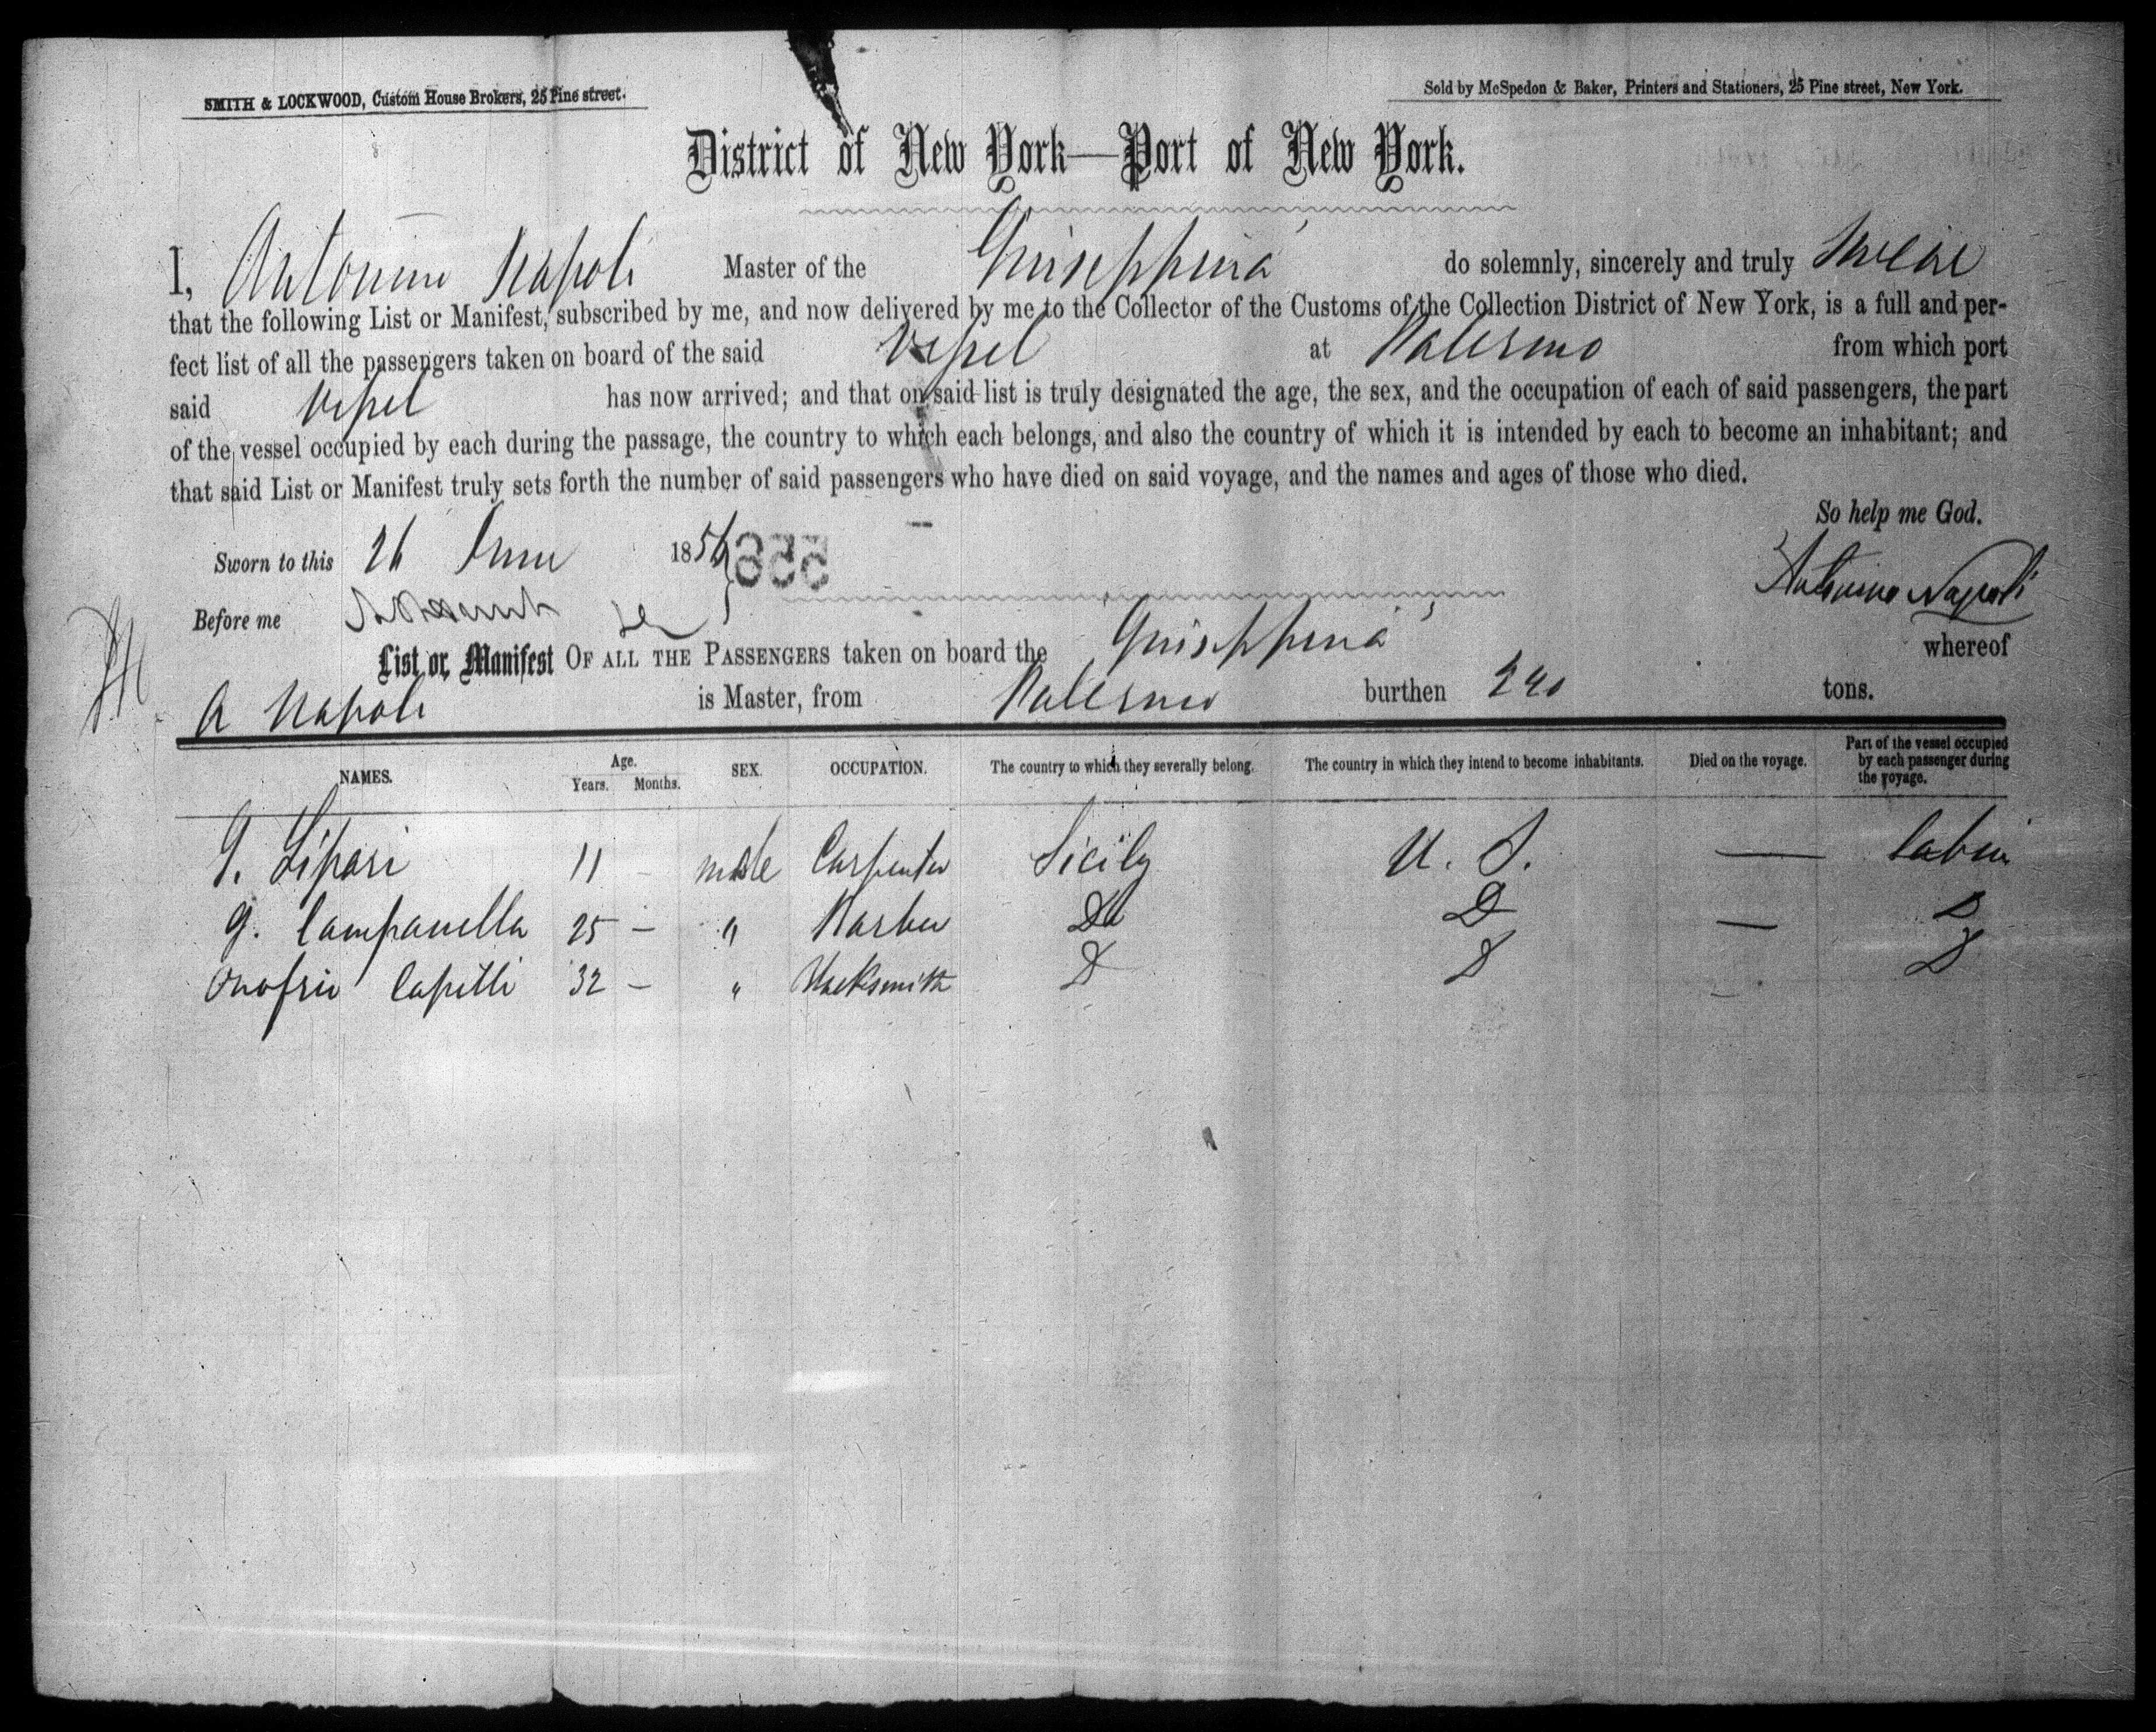 SMITH & LOCKWOOD, Custom House Brokers, 25 Pine street.
Sold by McSpedon & Baker, Printers and Stationers, 25 Pine street, New York.
District of New York—Port of New York.
I, Antonino Napoli Master of the Guiseppina do solemnly, sincerely and truly swear
that the following List or Manifest, subscribed by me, and now delivered by me to the Collector of the Customs of the Collection District of New York, is a full and per-
fect list of all the passengers taken on board of the said vessel at Palermo from which port
said vessel has now arrived; and that on said list is truly designated the age, the sex, and the occupation of each of said passengers, the part
of the vessel occupied by each during the passage, the country to which each belongs, and also the country of which it is intended by each to become an inhabitant; and
that said List or Manifest truly sets forth the number of said passengers who have died on said voyage, and the names and ages of those who died.
So help me God.
Sworn to this 26 June 1856 } 558
Antonino Napoli
Before me
List or Manifest OF ALL THE PASSENGERS taken on board the Guiseppina whereof
A Napoli is Master, from Palermo burthen 240 tons.
NAMES. Age. Years. Months. SEX. OCCUPATION. The country to which they severally belong. The country in which they intend to become inhabitants. Died on the voyage. Part of the vessel occupied by each passenger during the voyage.
G. Lipari 11 - male Carpenter Sicily U. S. — Cabin
G. Campanella 25 — " Barber Do D — D
Onofrio Capilli 32 — " Blacksmith D D — D